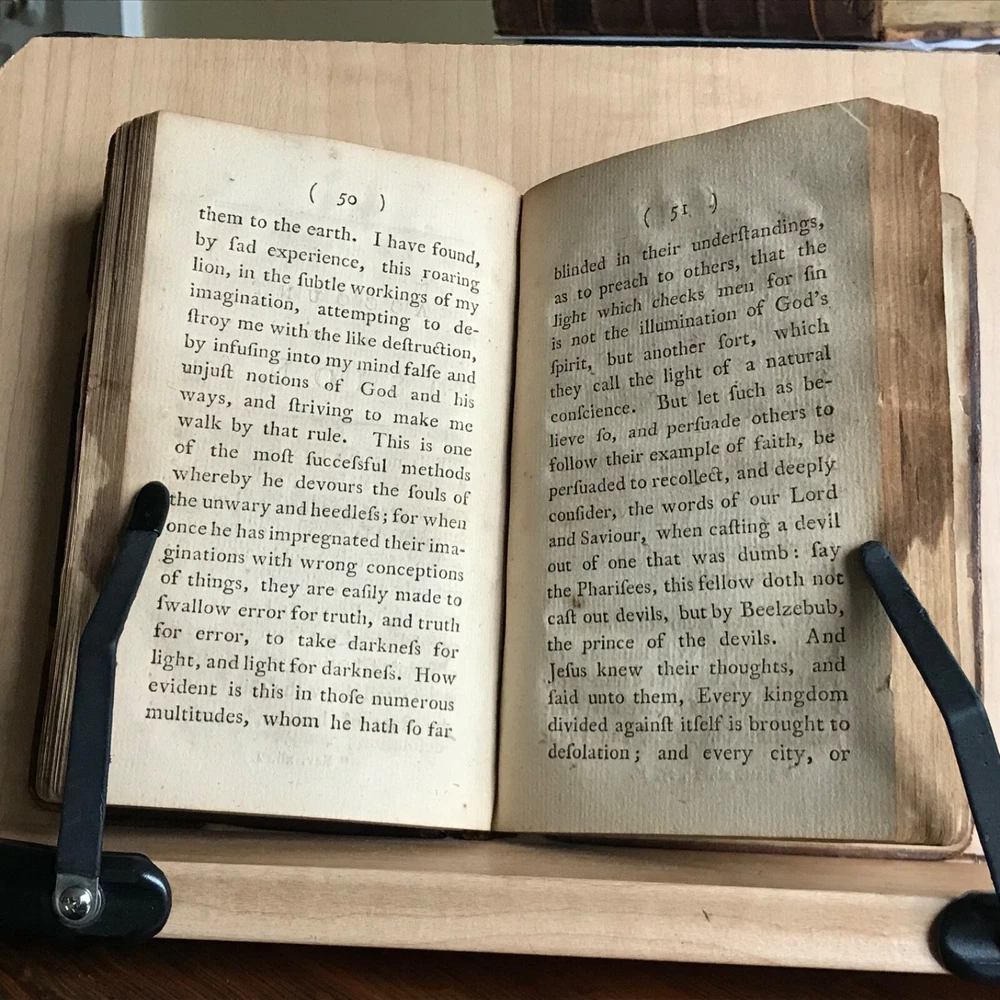 ( 50 )
them to the earth. I have found,
by ſad experience, this roaring
lion, in the ſubtle workings of my
imagination, attempting to de-
ſtroy me with the like deſtruction,
by infuſing into my mind falſe and
unjuſt notions of God and his
ways, and ſtriving to make me
walk by that rule. This is one
of the moſt ſucceſsful methods
whereby he devours the ſouls of
the unwary and heedleſs; for when
once he has impregnated their ima-
ginations with wrong conceptions
of things, they are eaſily made to
ſwallow error for truth, and truth
for error, to take darkneſs for
light, and light for darkneſs. How
evident is this in thoſe numerous
multitudes, whom he hath ſo far
( 51 )
blinded in their underſtandings,
as to preach to others, that the
light which checks men for ſin
is not the illumination of God's
ſpirit, but another ſort, which
they call the light of a natural
conſcience. But let ſuch as be-
lieve ſo, and perſuade others to
follow their example of faith, be
perſuaded to recollect, and deeply
conſider, the words of our Lord
and Saviour, when caſting a devil
out of one that was dumb: ſay
the Phariſees, this fellow doth not
caſt out devils, but by Beelzebub,
the prince of the devils. And
Jeſus knew their thoughts, and
ſaid unto them, Every kingdom
divided againſt itſelf is brought to
deſolation; and every city, or